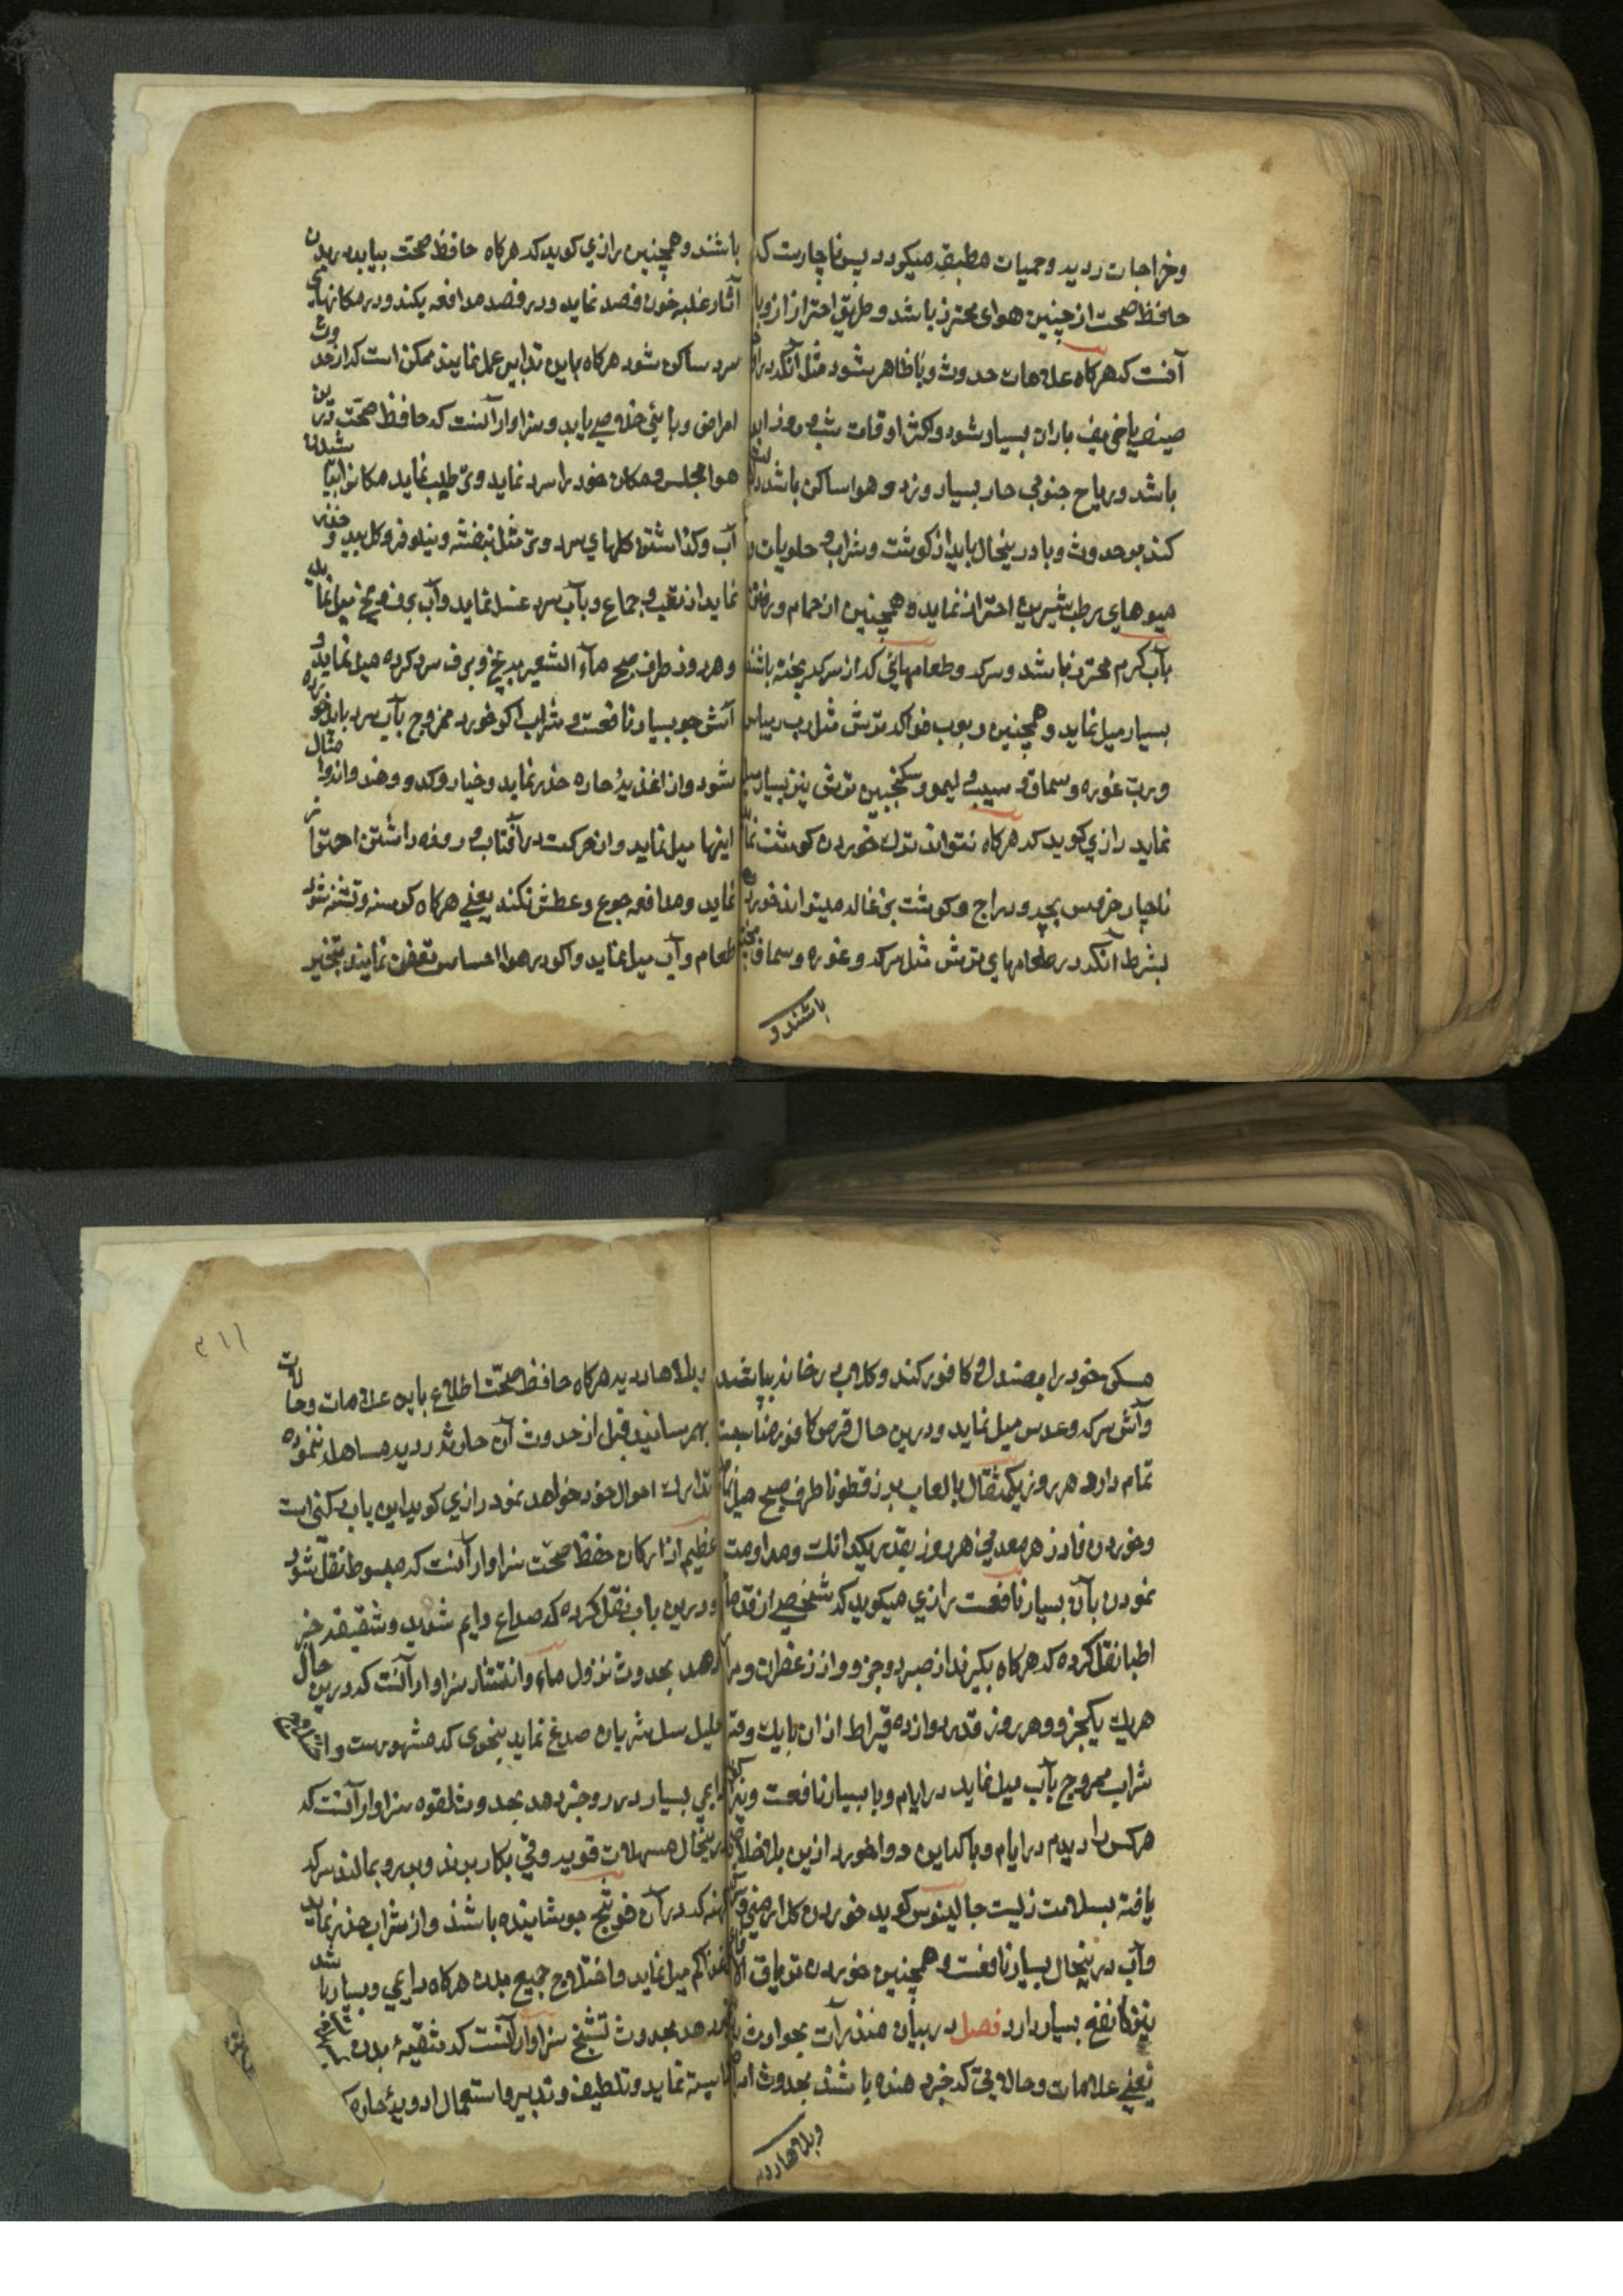 وخراجات ردیه وحمیات مطبقه میکردد پس ناچارست که
حافظ صحت از چنین هوای محترز باشد وطریق احتراز از وبا
آنست که هرکاه علامات حدوث وبا ظاهر شود مثل آنکه در
صیف یا خریف باران بسیار شود واکثر اوقات شب وروز ابر
باشد وریاح جنوبی حار بسیار وزد وهوا ساکن باشد
کند بر حدوث وبا درینحال باید از کوشت وشراب و حلویات و
میوهای رطب شیرین احتراز نماید وهمچنین از حمام و
بآب کرم محترز باشد وسرکه وطعامهائی که از سرکه پخته باشند
بسیار میل نماید وهمچنین ربوب فواکه ترش مثل رب ریباس
ورب غوره وسماق و سیب و لیمو وسکنجبین ترش نیز بسیار میل
نماید رازی کوید که هرکاه نتواند ترک خوردن کوشت
ناچار خرمس بچه ودراج وکوشت بزغاله میتواند خورد
بشرط آنکه در طعامهای ترش مثل سرکه وغوره وسماق پخته
باشند و
باشند وهمچنین رازی کوید که هرکاه حافظ صحت بیابد در بدن
آثار غلبه خون فصد نماید ودر فصد مدافعه نکند ودر مکانهای
سرد ساکن شود هرکاه باین تدابیر عمل نمایند ممکن است که از حدوث
امراض وبائی خلاصی یابد وسزاوار آنست که حافظ صحت درین
هوا مجلس ومکان خود را سرد نماید وتر طیب نماید مکانرا بپاشیدن
آب وکذاشتن کلهای سرد وتر مثل بنفشه ونیلوفر وکل بید وحذر
نماید از تعب و جماع وبآب سرد غسل نماید وآب برف ویخ میل نماید
وهر روز طرف صبح ماء الشعیر به یخ وبرف سرد کرده میل نماید و
آش جو بسیار نافعست وشراب اکر خورد ممزوج بآب سرد باید خورده
شود واز اغذیه حاره حذر نماید وخیار وکدو وهندوانه وامثال
اینها میل نماید واز حرکت در آفتاب و روزه داشتن احتراز
نماید ومدافعه جوع وعطش نکند یعنی هرکاه کرسنه وتشنه شود
طعام وآب میل نماید واکر در هوا احساس تعفن نمایند تبخیر
مسکن خود را بصندل و کافور کنند وکلاب در خانه بپاشند
وآش سرکه وعدس میل نماید ودرین حال قرص کافور مناسبت
تمام دارد هر روز یکمثقال بالعاب بزرقطونا طرف صبح میل
وخوردن فادزهر معدنی هر روز بقدر یکدانک ومداومت
نمودن بآن بسیار نافعست رازی میکوید که شخصی از قدماء
اطبا نقل کرده که هرکاه بکیرند از صبر دو جزو واز زعفران ومر از
هریک یکجزو وهر روز قدر دوازده قیراط ازان با یک وقیه
شراب ممزوج بآب میل نماید در ایام وبا بسیار نافعست
هرکس را دیدم در ایام وبا که این دوا خورد ازین بلا خلاصی
یافته بسلامت زیست جالینوس کوید خوردن کل ارمنی
وآب درینحال بسیار نافعست وهمچنین خوردن تریاق الافاعی
نیز نفع بسیار دارد فصل در بیان منذرات بحوادث
یعنی علامات وحالاتی که خبر دهنده باشند بحدوث
وبلاهاء ردیه
۳۱۱
وبلاهاء ردیه هرکاه حافظ صحت اطلاع باین علامات وحالات
بهم رسانید وقبل از حدوث آن حادثه ردیه مساهله ننموده
تدارک احوال خود خواهد نمود رازی کوید این باب رکنی است
عظیم از ارکان حفظ صحت سزاوار آنست که مبسوط نقل شود
ودرین باب نقل کرده که صداع دایم شدید وشقیقه خبر
دهد بحدوث نزول ماء وانتشار سزاوار آنست که درین حال
سل شریان صدغ نماید بنحوی که مشهورست
بسیار در رو خبر دهد بحدوث لقوه سزاوار آنست که
درینحال مسهلات قویه وقی بکار برند وبر رو بمالند سرکه
کهنه که در آن فوتنج جوشانیده باشند واز شراب حذر نماید
غذا کم میل نماید واختلاج جمیع بدن هرکاه دایمی وبسیار باشد
خبر دهد بحدوث تشنج سزاوار آنست که تنقیه بدن
نماید وتلطیف وتدبیر واستعمال ادویه حاره